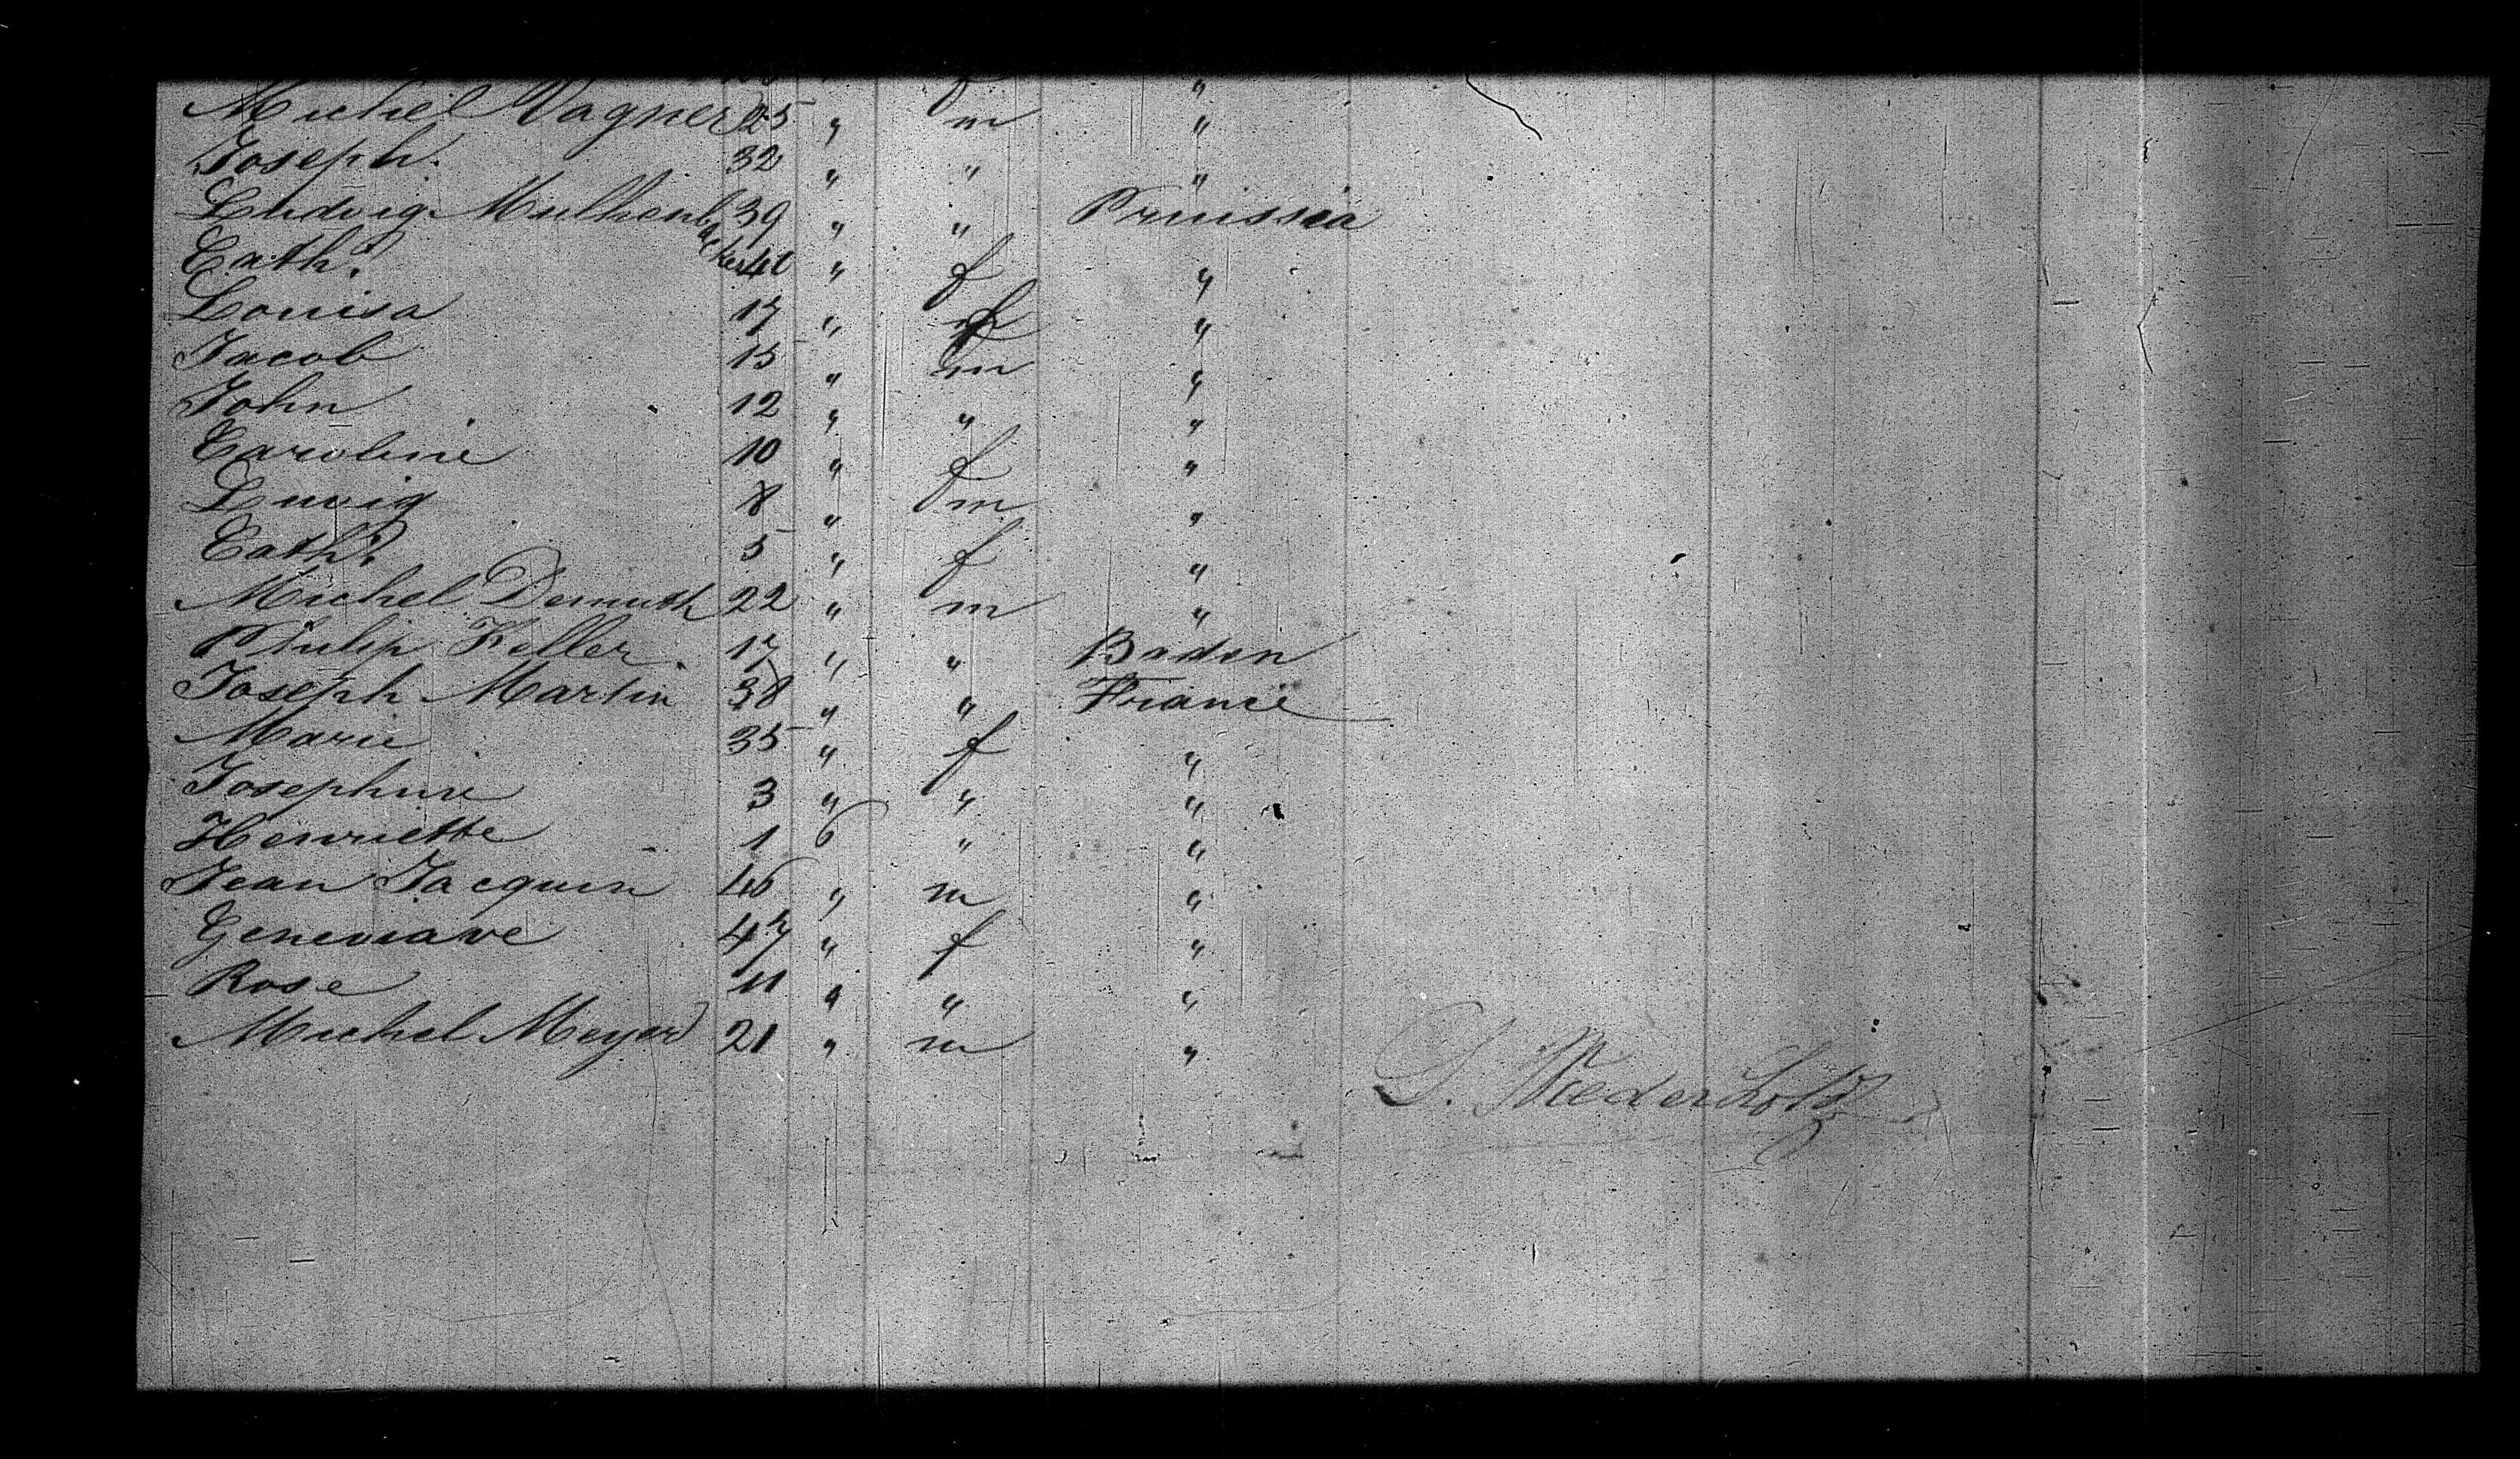 Michel Wagner 25 " m "
Joseph 32 " " "
Ludwig Mulhenbacker 39 " " Pruissia
Cath. " f "
Louisa 17 " f "
Jacob 15 " m "
John 12 " " "
Caroline 10 " f "
Luwig 8 " m "
Cath. 5 " f "
Michel Demuth 22 " m "
Philip Keller 17 " " Baden
Joseph Martin 38 " " France
Marie 35 " f "
Josephine 3 " " "
Henriette 1 6 " "
Jean Jacquin 46 " m "
Geneviave 47 " f "
Rose 11 " " "
Michel Meyer 21 " m "
D. Wiederholdt